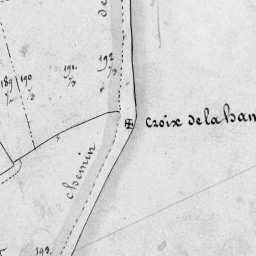 de
189
190
191
192
croix de la han
chemin
193